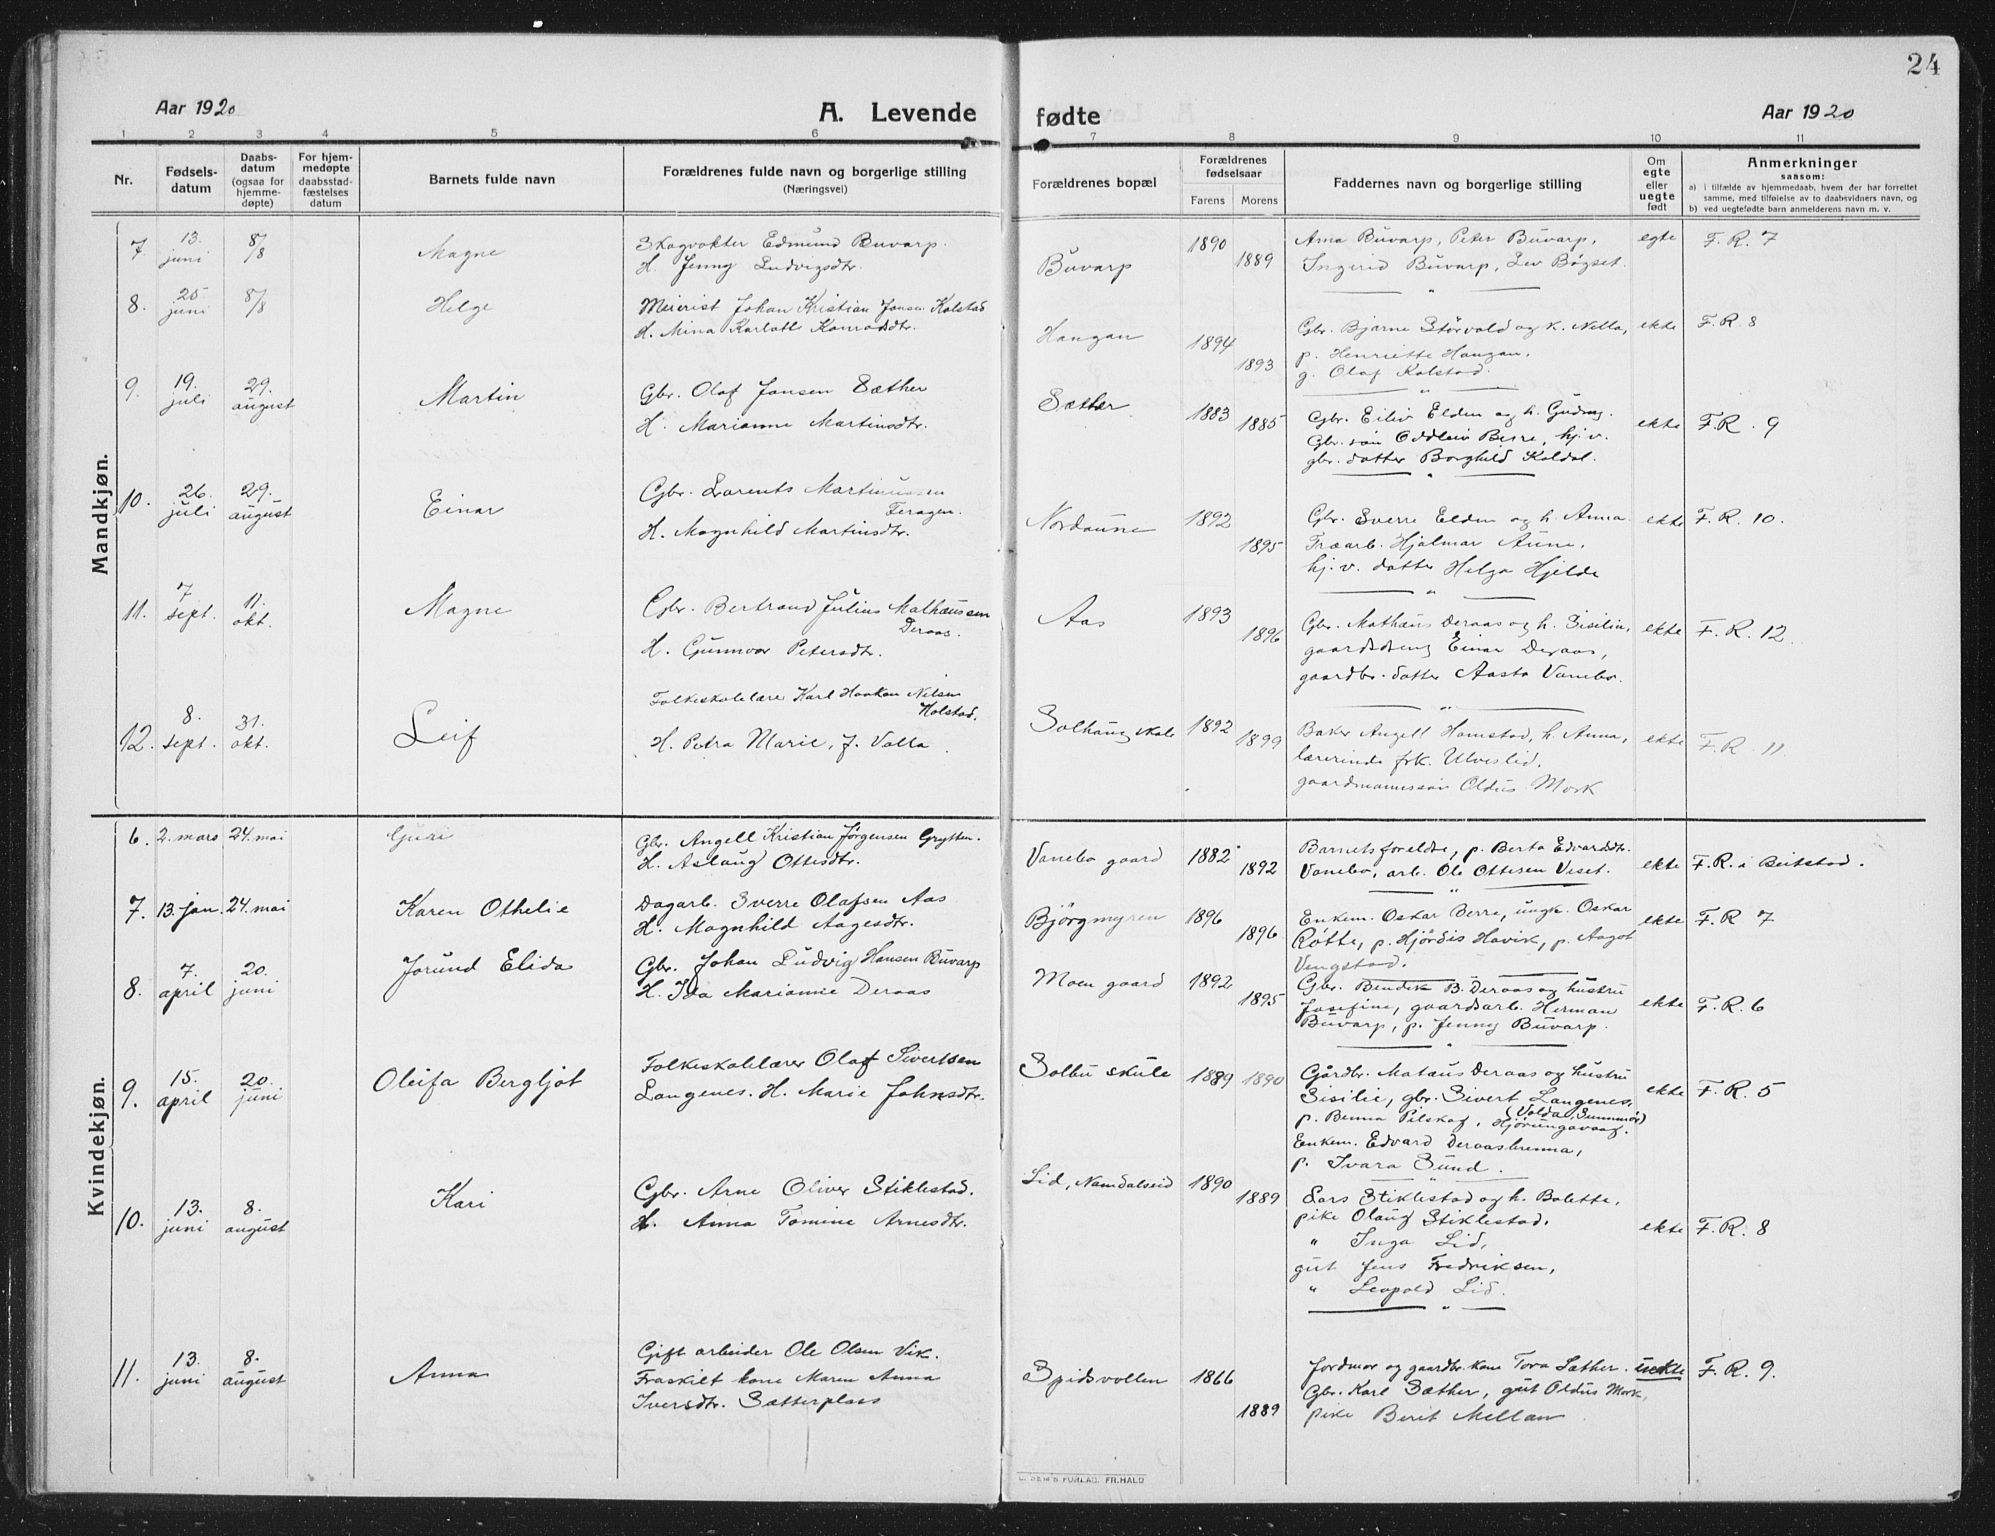 24
Aar 1920
A. Levende fødte
Aar 1920
1 2 3 4 5 6 7 8 9 10 11
Nr.
Fødsels-
datum
Daabs-
datum
(ogsaa for
hjemme-
døpte)
For hjem-
medøpte
daabsstad-
fæstelses
datum
Barnets fulde navn
Forældrenes fulde navn og borgerlige stilling
(Næringsvei)
Forældrenes bopæl
Forældrenes
fødselsaar
Farens Morens
Faddernes navn og borgerlige stilling
Om
egte
eller
uegte
født
Anmerkninger
saasom:
a) i tilfælde av hjemmedaab, hvem der har forrettet
samme, med tilføielse av to daabsvidners navn, og
b) ved uegtefødte barn anmelderens navn m. v.
Mandkjøn.
7 13. juni 8/8 Magne
Skogvokter Edmund Buvarp.
H. Jenny Ludvigsdtr.
Buvarp 1890 1889
Arna Buvarp, Peter Buvarp,
Ingerid Buvarp, Lev Bøgset.
egte F. R. 7
8. 25 juni 8/8 Helge
Meierist Johan Kristian Jonsen Kolstad
H. Mina Karlotte Konradsdtr.
Haugan 1894 1893
Gbr. Bjarne Störvold og k. Nella,
p. Henriette Haugan,
g. Olaf Kolstad.
ekte F. R. 8
9. 19. juli 29. august Martin
Gbr. Olaf Jansen Sæther
H. Marianne Martinsdtr.
Sæther 1883 1885
Gbr. Eiliv Elden og h. Gudny.
Gbr. søn Oddleiv Berre, hj. v.
gbr. datter Borghild Koldal.
ekte F. R. 9
10. 26. juli 29. august Einar
Gbr. Lorents Martinussen
Feragen.
H. Magnhild Martinsdtr.
Nordaune 1892 1895
Gbr. Sverre Elden og h. Anna.
Træarb. Hjalmar Aune,
hj. v. datter Helga Hjelde
ekte F. R. 10.
11. 7 sept. 11. okt. Magne
Gbr. Bertrand Julius Mathæussen
Deraas.
H. Gunnvor Petersdtr.
Aas 1893 1896
Gbr. Mathæus Deraas og h. Sisilie,
gaardsdreng Einar Deraas,
gaardbr. datter Aasta Vanebo.
ekte F. R. 12
12. 8. sept. 31. okt. Leif
Folkeskolelære Karl Haakon Nilsen
Holstad.
H. Petra Marie, f. Valla
Solhaug skole 1892 1899
Baker Angell Hamstad, h. Anna,
lærerinde frk. Ulveslid,
gaardmannssøn Oldus Mork
ekte F. R. 11
Kvindekjøn.
6. 2. mars 24. mai Guri
Gbr. Angell Kristian Jørgensen Grytten.
H. Aslaug Ottesdtr.
Vanebo gaard 1882 1892
Barnets foreldre, p. Berta Edvardsdtr.
Vanebo, arb. Ole Ottesen Veset.
ekte F. R. i Beitstad.
7. 13. jan. 24. mai Karen Othelie
Dagarb. Sverre Olafsen Aas
H. Magnhild Aagesdtr.
Bjørgmyren 1896 1896
Enkem. Oskar Berre, ungk. Oskar
Røtte, p. Hjördis Havik, p. Aagot
Vengstad.
ekte F. R 7
8. 7. april 20. juni Jorund Elida
Gbr. Johan Ludvig Hansen Buvarp
H. Ida Marianne Deraas
Moen gaard 1892 1895
Gbr. Bendik B. Deraas og hustru
Josefine, gaardsarb. Herman
Buvarp, p. Jenny Buvarp.
ekte F. R. 6
9. 15. april 20. juni Oleifa Bergljot
Folkeskolelærer Olaf Sivertsen
Langenes. H. Marie Johnsdtr.
Solbu skule 1889 1890
Gårdbr. Matæus Deraas og hustru
Sisilie, gbr. Sivert Langenes,
(Volda, Sunnmør)
p. Benna Pilskog, Hjørungavaag.
Enkem. Edvard Deraasbrenna,
p. Ivara Sund.
ekte F. R. 5
10. 13. juni 8. august Kari
Gbr. Arne Oliver Stiklestad.
H. Anna Tomine Arnesdtr.
Lid, Namdalseid 1890 1889
Lars Stiklestad og h. Bolette,
pike Olaug Stiklestad,
" Inga Lid,
gut Jens Fredriksen,
" Leopold Lid.
ekte F. R. 8
11. 13. juni 8. august Anna
Gift arbeider Ole Olsen Vik.
Fraskilt kone Maren Anna
Iversdtr. Sætterplass
Spidsvollen 1866 1889
Jordmor og gaardbr. kone Tora Sæther.
Gbr. Karl Sæther, gut Oldus Mork,
pike Berit Mellan
uekte F. R. 9.
FORLAG. FR. HALD